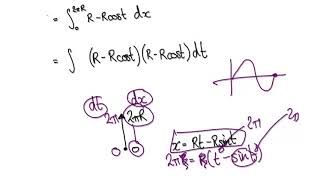 = ∫₀^2πR R-Rcost dx
= ∫ (R-Rcost)(R-Rcost)dt
dt dx
2π 2πR
0 0
x = Rt-Rsint 2π
2πR = R(t-sint) 20